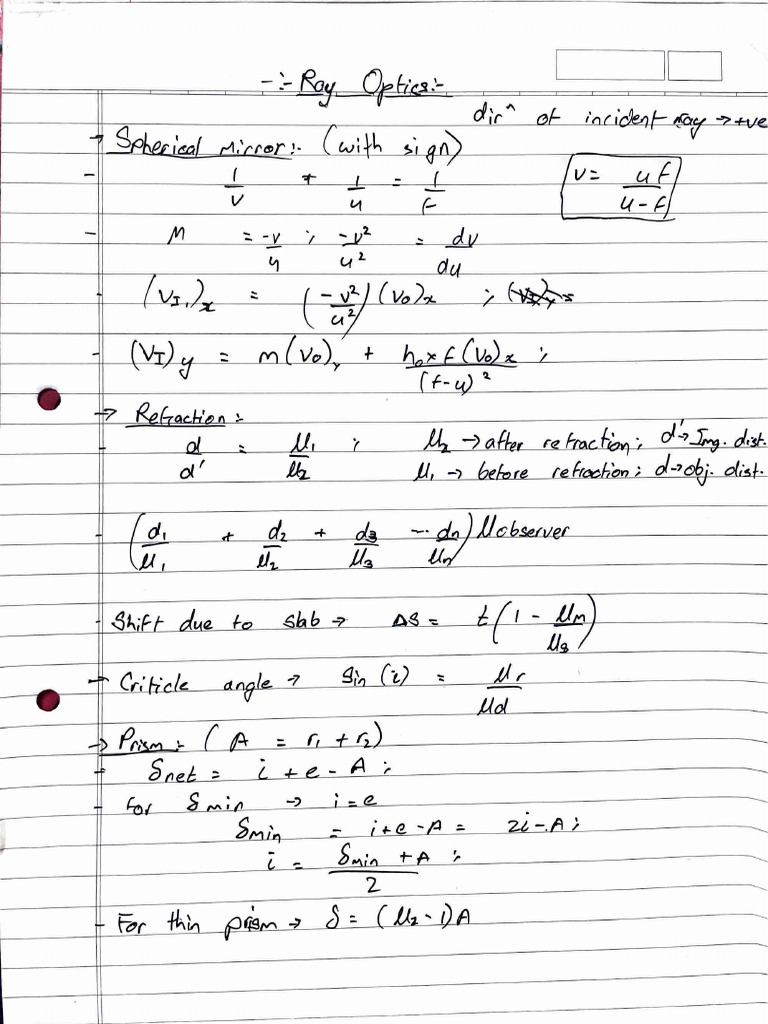 -:- Ray Optics:-
dirⁿ of incident ray → +ve
→ Spherical mirror:- (with sign)
- 1/v + 1/u = 1/f
v = uf/(u-f)
- M = -v/u ; -v²/u² = dv/du
- (V_I,)_x = (-v²/u²)(V_O)_x ;
- (V_I)_y = m(V_O)_y + h_o × f(V_O)_x/(f-u)² ;
→ Refraction:-
- d/d' = μ₁/μ₂ ; μ₂ → after refraction; d' → Img. dist.
μ₁ → before refraction; d → obj. dist.
- (d₁/μ₁ + d₂/μ₂ + d₃/μ₃ --- dn/μn) μobserver
- Shift due to slab → ΔS = t(1 - μm/μs)
- Criticle angle → Sin (i) = μr/μd
→ Prism:- (A = r₁ + r₂)
- δnet = i + e - A ;
- For δmin → i = e
δmin = i+e-A = 2i-A ;
i = (δmin + A)/2 ;
- For thin prism → δ = (μ₂-1)A